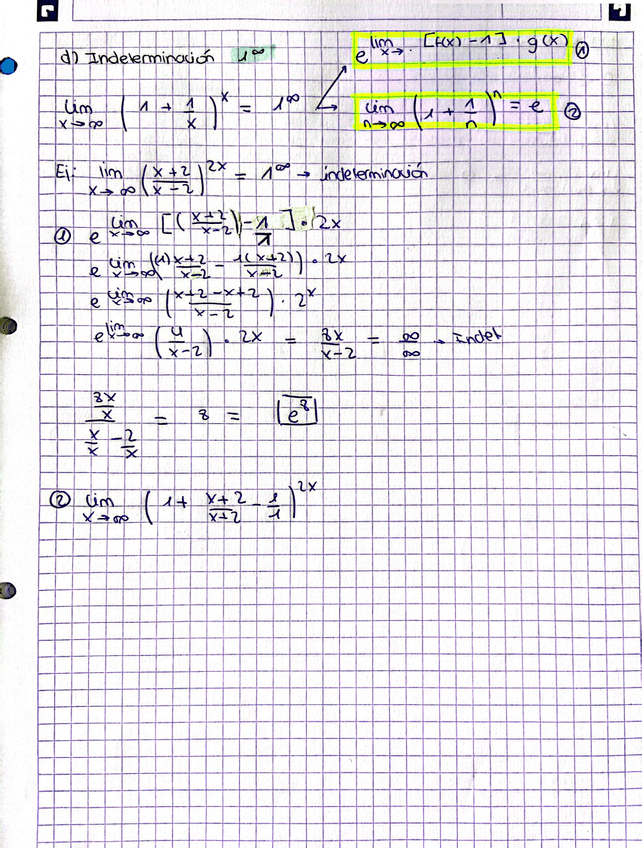 d) Indeterminación 1^∞
e^{lim x→. [f(x) − 1] · g(x)} ①
lim x→∞ (1 + 1/x)^x = 1^∞
lim n→∞ (1 + 1/n)^n = e ②
Ej: lim x→∞ ((x+2)/(x−2))^{2x} = 1^∞ → indeterminación
① e^{lim x→∞ [((x+2)/(x−2)) − 1/1] · 2x}
e^{lim x→∞ ((1)(x+2)/(x−2) − 1(x+2)/(x−2)) · 2x}
e^{lim x→∞ ((x+2−x+2)/(x−2)) · 2^x}
e^{lim x→∞ (4/(x−2)) · 2x} = 8x/(x−2) = ∞/∞ → Indet
(8x/x)/(x/x − 2/x) = 8 = e^8
② lim x→∞ (1 + (x+2)/(x+2) − 1/1)^{2x}